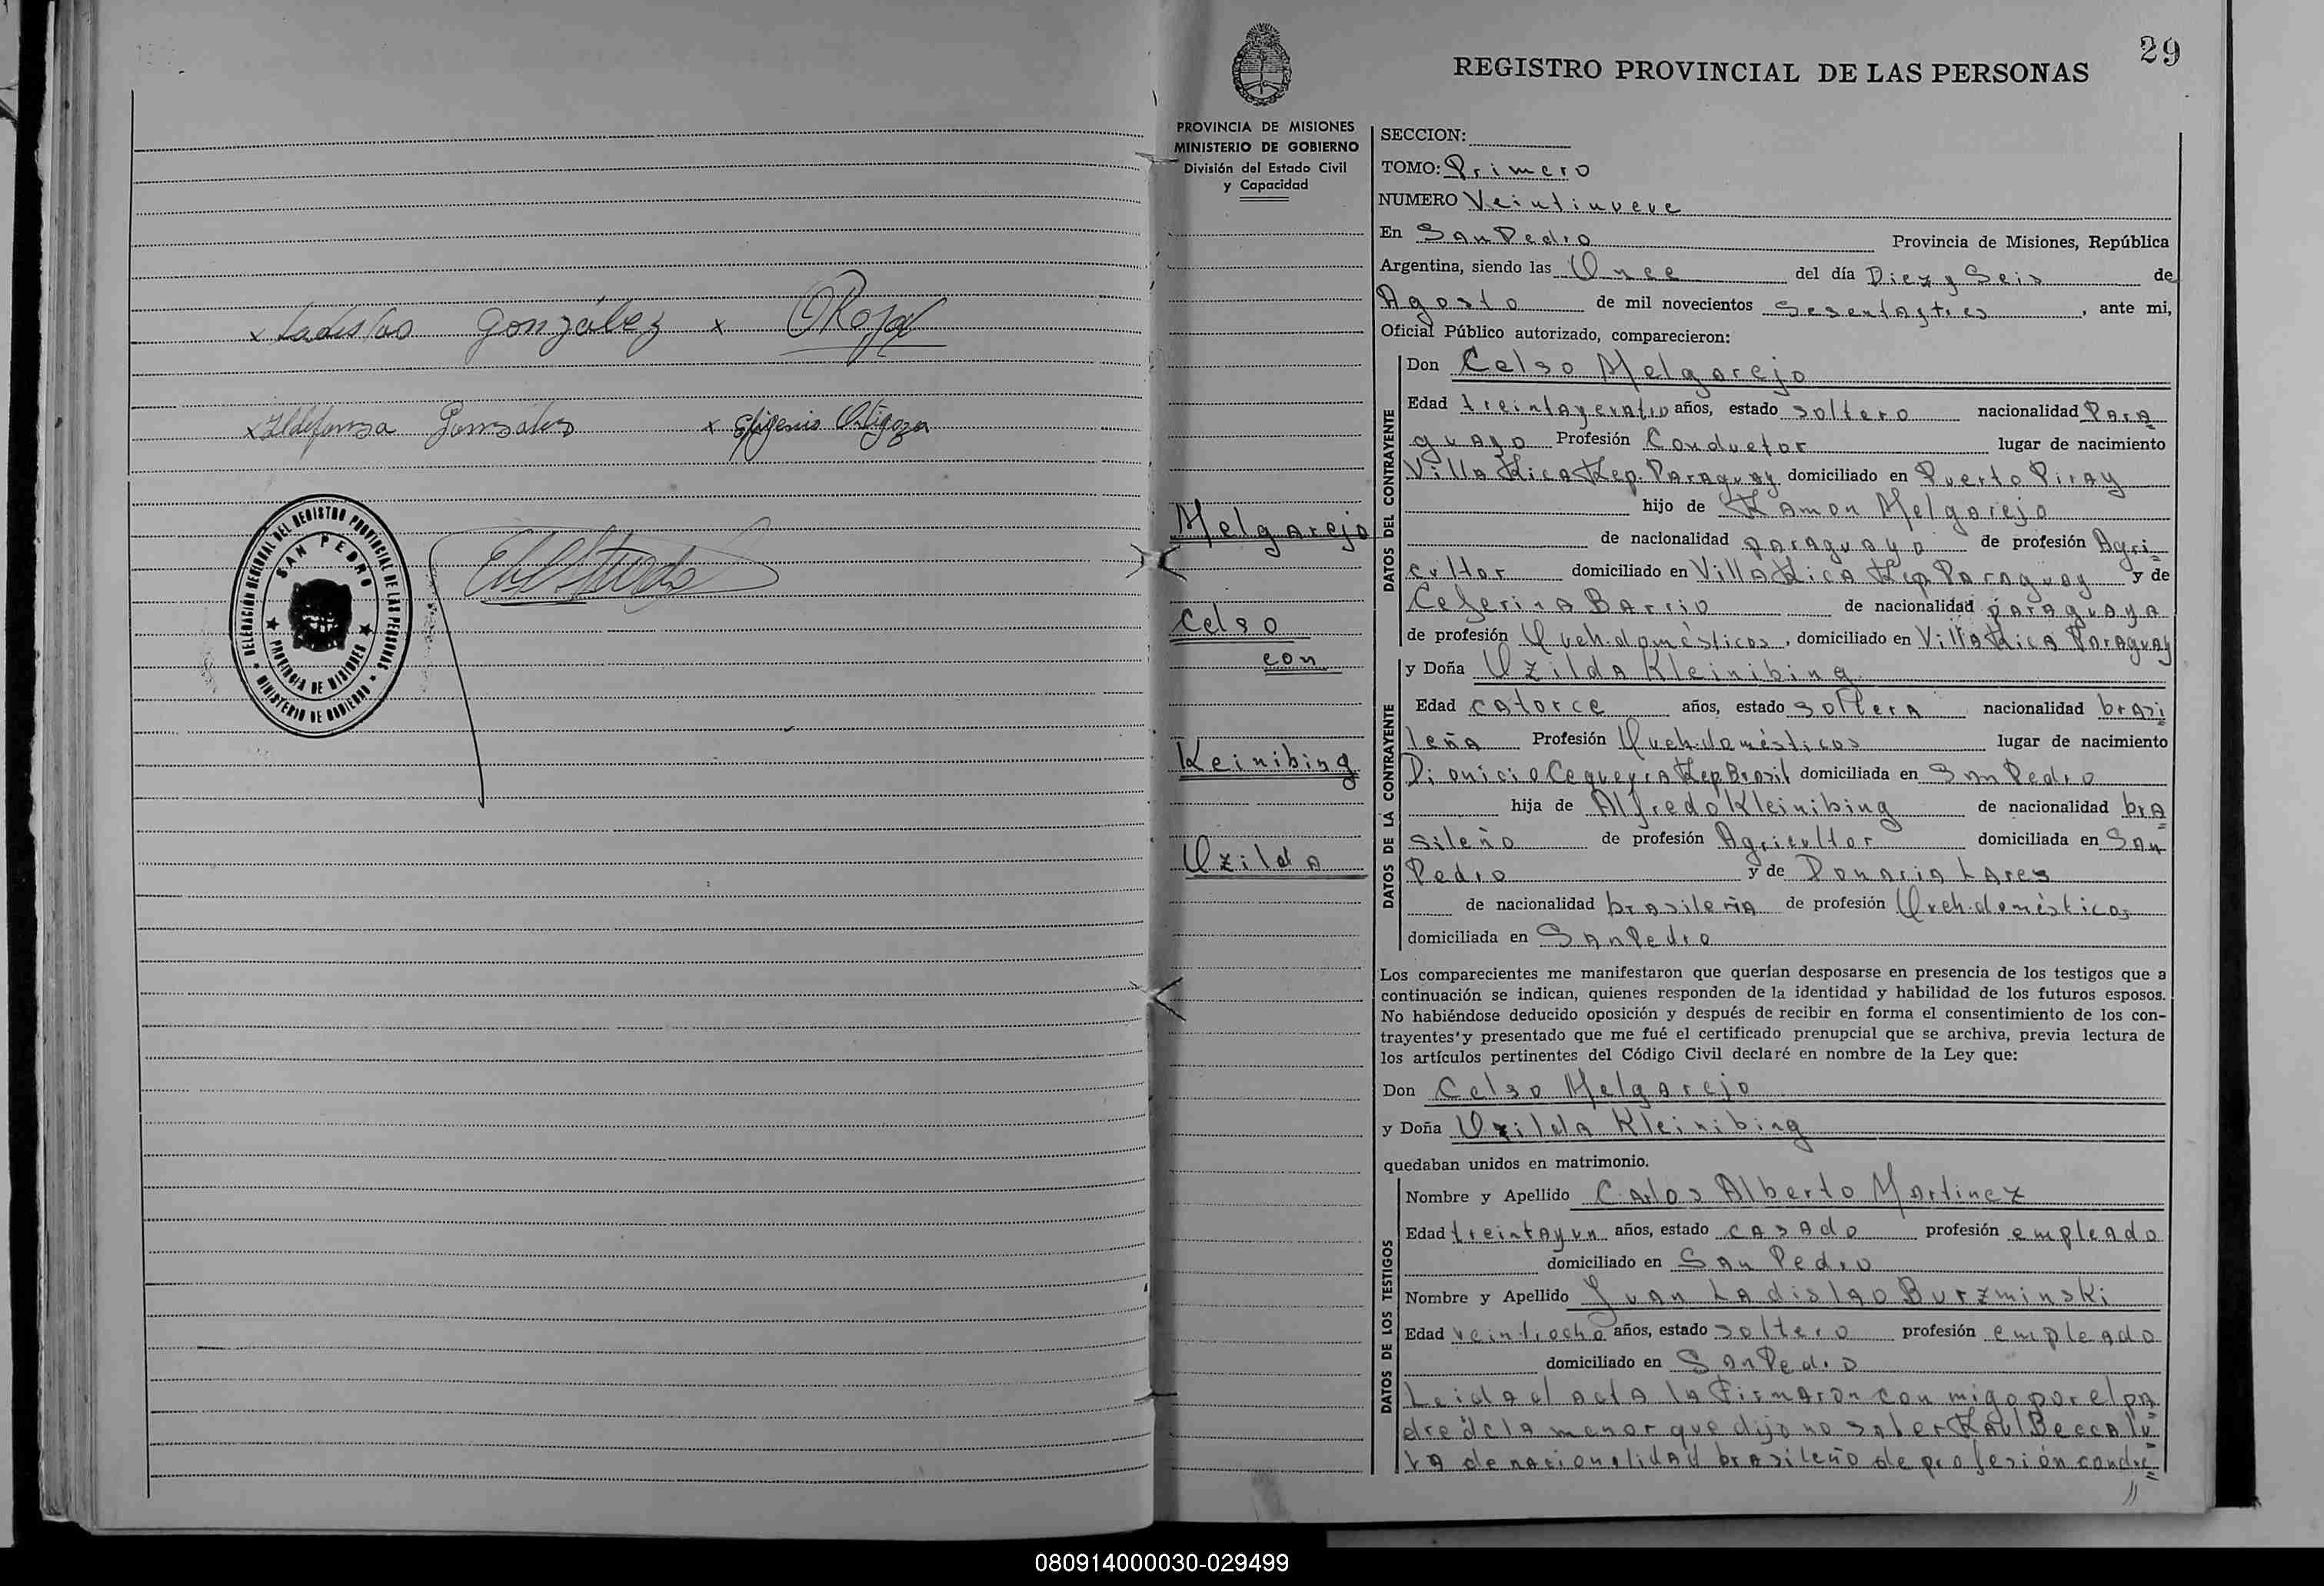 x Ladislao González x ORojas
x Ildefonsa Gonzales x Efigenio Ortigoza
DELEGACIÓN REGIONAL DEL REGISTRO PROVINCIAL DE LAS PERSONAS
SAN PEDRO
PROVINCIA DE MISIONES
MINISTERIO DE GOBIERNO
29
REGISTRO PROVINCIAL DE LAS PERSONAS
PROVINCIA DE MISIONES
MINISTERIO DE GOBIERNO
División del Estado Civil
y Capacidad
Melgarejo
Celso
con
Keinibing
Ozilda
SECCION:
TOMO: Primero
NUMERO Veintinueve
En San Pedro Provincia de Misiones, República
Argentina, siendo las Once del día Diez y Seis de
Agosto de mil novecientos Sesentaytres, ante mi,
Oficial Público autorizado, comparecieron:
DATOS DEL CONTRAYENTE
Don Celso Melgarejo
Edad treintaycuatro años, estado soltero nacionalidad Para
guayo Profesión Conductor lugar de nacimiento
Villa Rica Rep. Paraguay domiciliado en Puerto Piray
hijo de Ramon Melgarejo
de nacionalidad paraguayo de profesión Agri
cultor domiciliado en Villa Rica Rep Paraguay y de
Ceferina Barrio de nacionalidad paraguaya
de profesión Queh. domésticos, domiciliado en Villa Rica Paraguay
DATOS DE LA CONTRAYENTE
y Doña Ozilda Kleinibing
Edad catorce años, estado soltera nacionalidad brasi
leña Profesión Queh. domésticos lugar de nacimiento
Dionicio Cequeyra Rep Brasil domiciliada en San Pedro
hija de Alfredo Kleinibing de nacionalidad bra
sileño de profesión Agricultor domiciliada en San
Pedro y de Donaria Lares
de nacionalidad brasileña de profesión Queh. domésticos
domiciliada en San Pedro
Los comparecientes me manifestaron que querían desposarse en presencia de los testigos que a
continuación se indican, quienes responden de la identidad y habilidad de los futuros esposos.
No habiéndose deducido oposición y después de recibir en forma el consentimiento de los con-
trayentes y presentado que me fué el certificado prenupcial que se archiva, previa lectura de
los artículos pertinentes del Código Civil declaré en nombre de la Ley que:
Don Celso Melgarejo
y Doña Ozilda Kleinibing
quedaban unidos en matrimonio.
DATOS DE LOS TESTIGOS
Nombre y Apellido Carlos Alberto Martinez
Edad treintayun años, estado casado profesión empleado
domiciliado en San Pedro
Nombre y Apellido Juan Ladislao Burzminski
Edad veintiocho años, estado soltero profesión empleado
domiciliado en San Pedro
Leida el acta la firmaron con migo por el pa
dre de la menor que dijo no saber Raul Beccalu
va de nacionalidad brasileño de profesión conduc
//
080914000030-029499